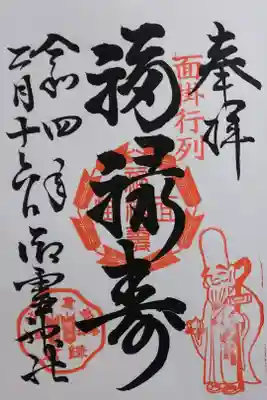 奉拝
面掛行列
福禄寿
令和四年
二月十六日
御霊神社